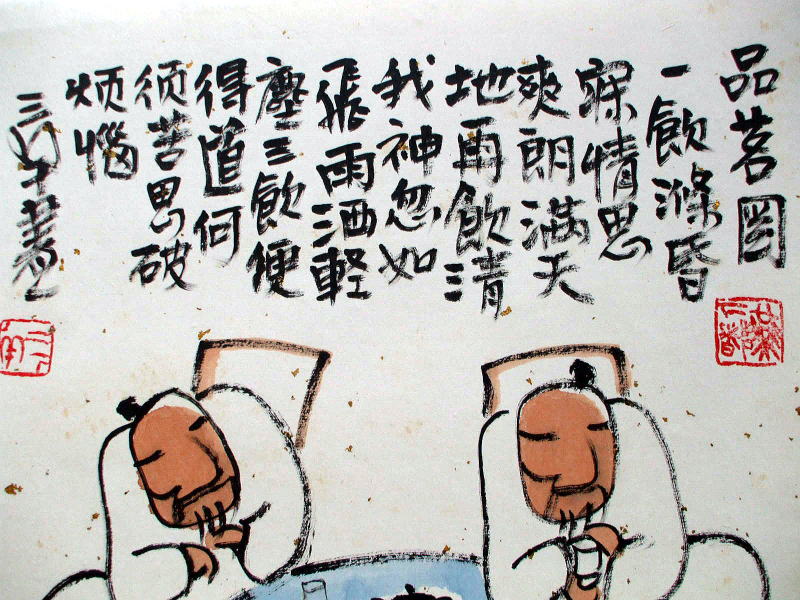 品茗图
一飲滌昏
寐情思
爽朗满天
地再飲清
我神忽如
飛雨洒軽
塵三飲便
得道何
须苦思破
烦惱